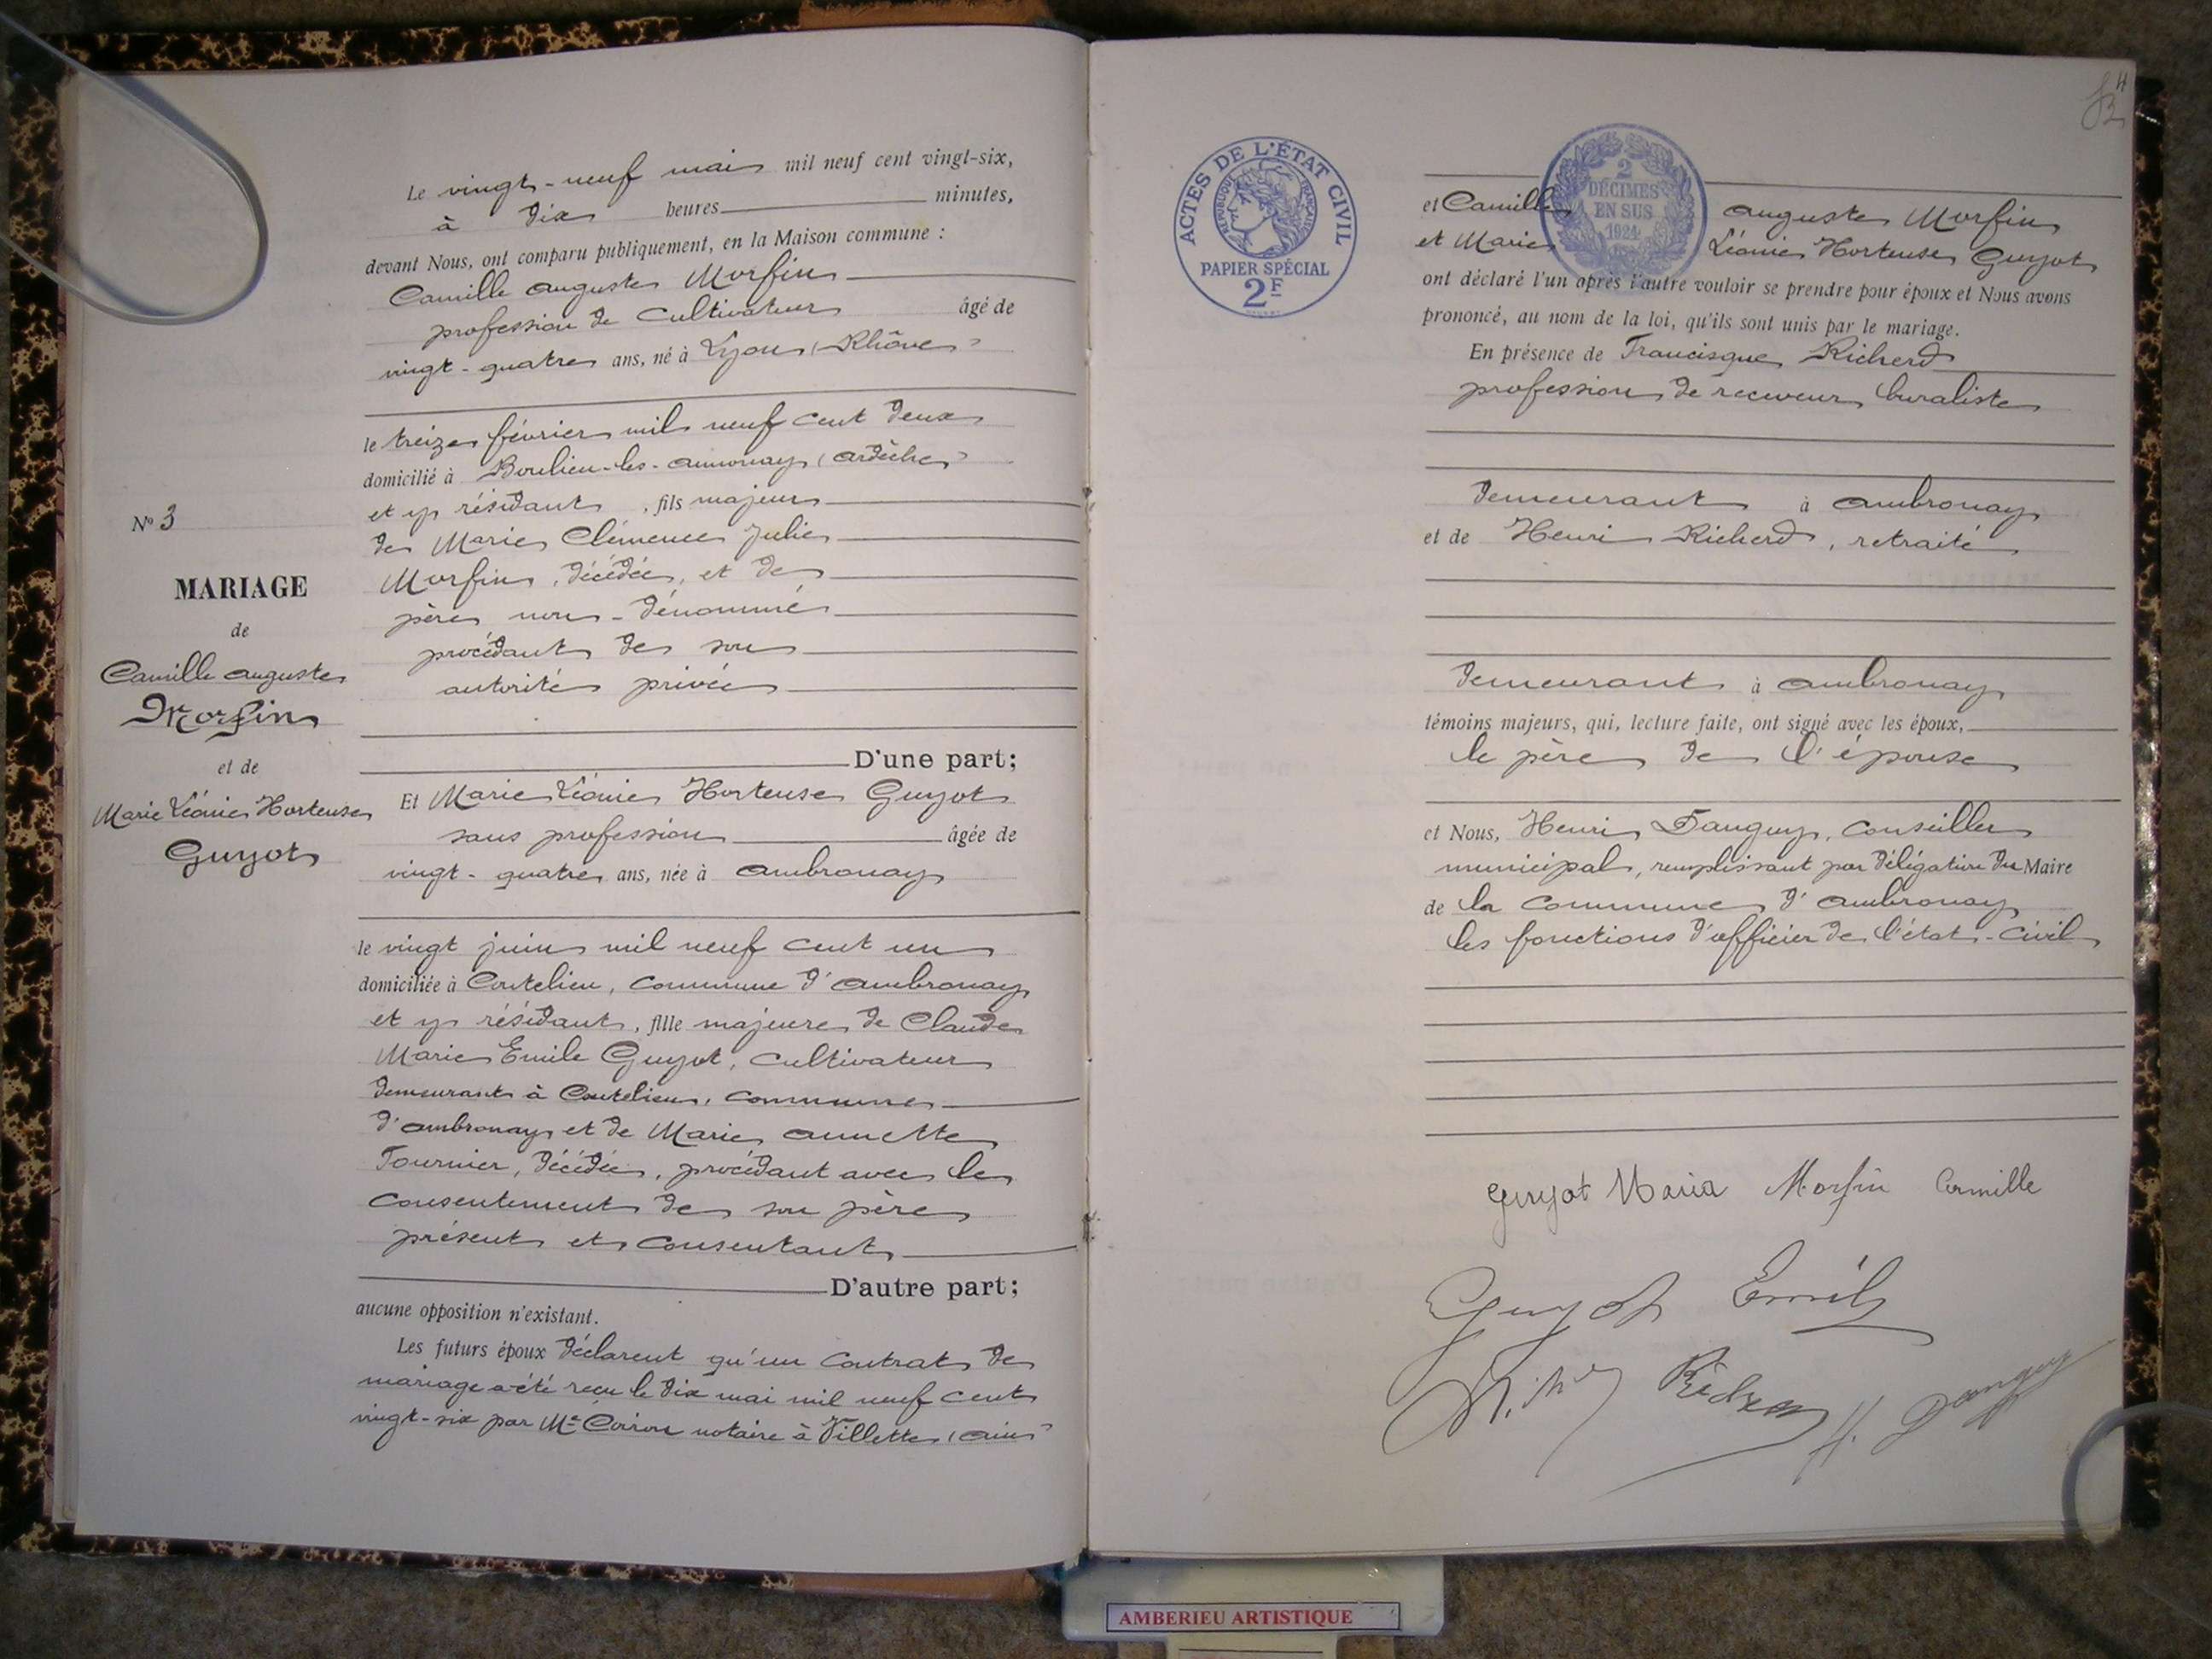 N° 3
MARIAGE
de
Camille Auguste
Morfin
et de
Marie Léonie Hortense
Guyot
Le vingt-neuf mai mil neuf cent vingt-six,
à dix heures minutes,
devant Nous, ont comparu publiquement, en la Maison commune :
Camille Auguste Morfin
profession de cultivateur âgé de
vingt-quatre ans, né à Lyon (Rhône)
le treize février mil neuf cent deux
domicilié à Boulieu-les-Annonay (Ardèche)
et y résidant, fils majeur
de Marie Clémence Julie
Morfin, décédée, et de
père non-dénommé
procédant de son
autorité privée
D'une part;
Et Marie Léonie Hortense Guyot
sans profession âgée de
vingt-quatre ans, née à Ambronay
le vingt juin mil neuf cent un
domiciliée à Coutelieu, commune d'Ambronay
et y résidant, fille majeure de Claude
Marie Emile Guyot, cultivateur
demeurant à Coutelieu, commune
d'Ambronay et de Marie Annette
Tournier, décédée, procédant avec le
consentement de son père
présent et consentant
D'autre part;
aucune opposition n'existant.
Les futurs époux déclarent qu'un contrat de
mariage a été reçu le dix mai mil neuf cent
vingt-six par Me notaire à Villette (Ain)
4
ACTES DE L'ÉTAT CIVIL
RÉPUBLIQUE FRANÇAISE
PAPIER SPÉCIAL
2F
2
DÉCIMES
EN SUS
1924
et Camille Auguste Morfin
et Marie Léonie Hortense Guyot
ont déclaré l'un après l'autre vouloir se prendre pour époux et Nous avons
prononcé, au nom de la loi, qu'ils sont unis par le mariage.
En présence de Francisque Richerd
profession de receveur buraliste
demeurant à Ambronay
et de Henri Richerd, retraité
demeurant à Ambronay
témoins majeurs, qui, lecture faite, ont signé avec les époux,
le père de l'épouse
et Nous, Henri Tanguy, conseiller
municipal, remplissant par délégation du Maire
de la commune d'Ambronay
les fonctions d'officier de l'état-civil
Guyot Maria Morfin Camille
Guyot Emile
H. Tanguy
AMBERIEU ARTISTIQUE